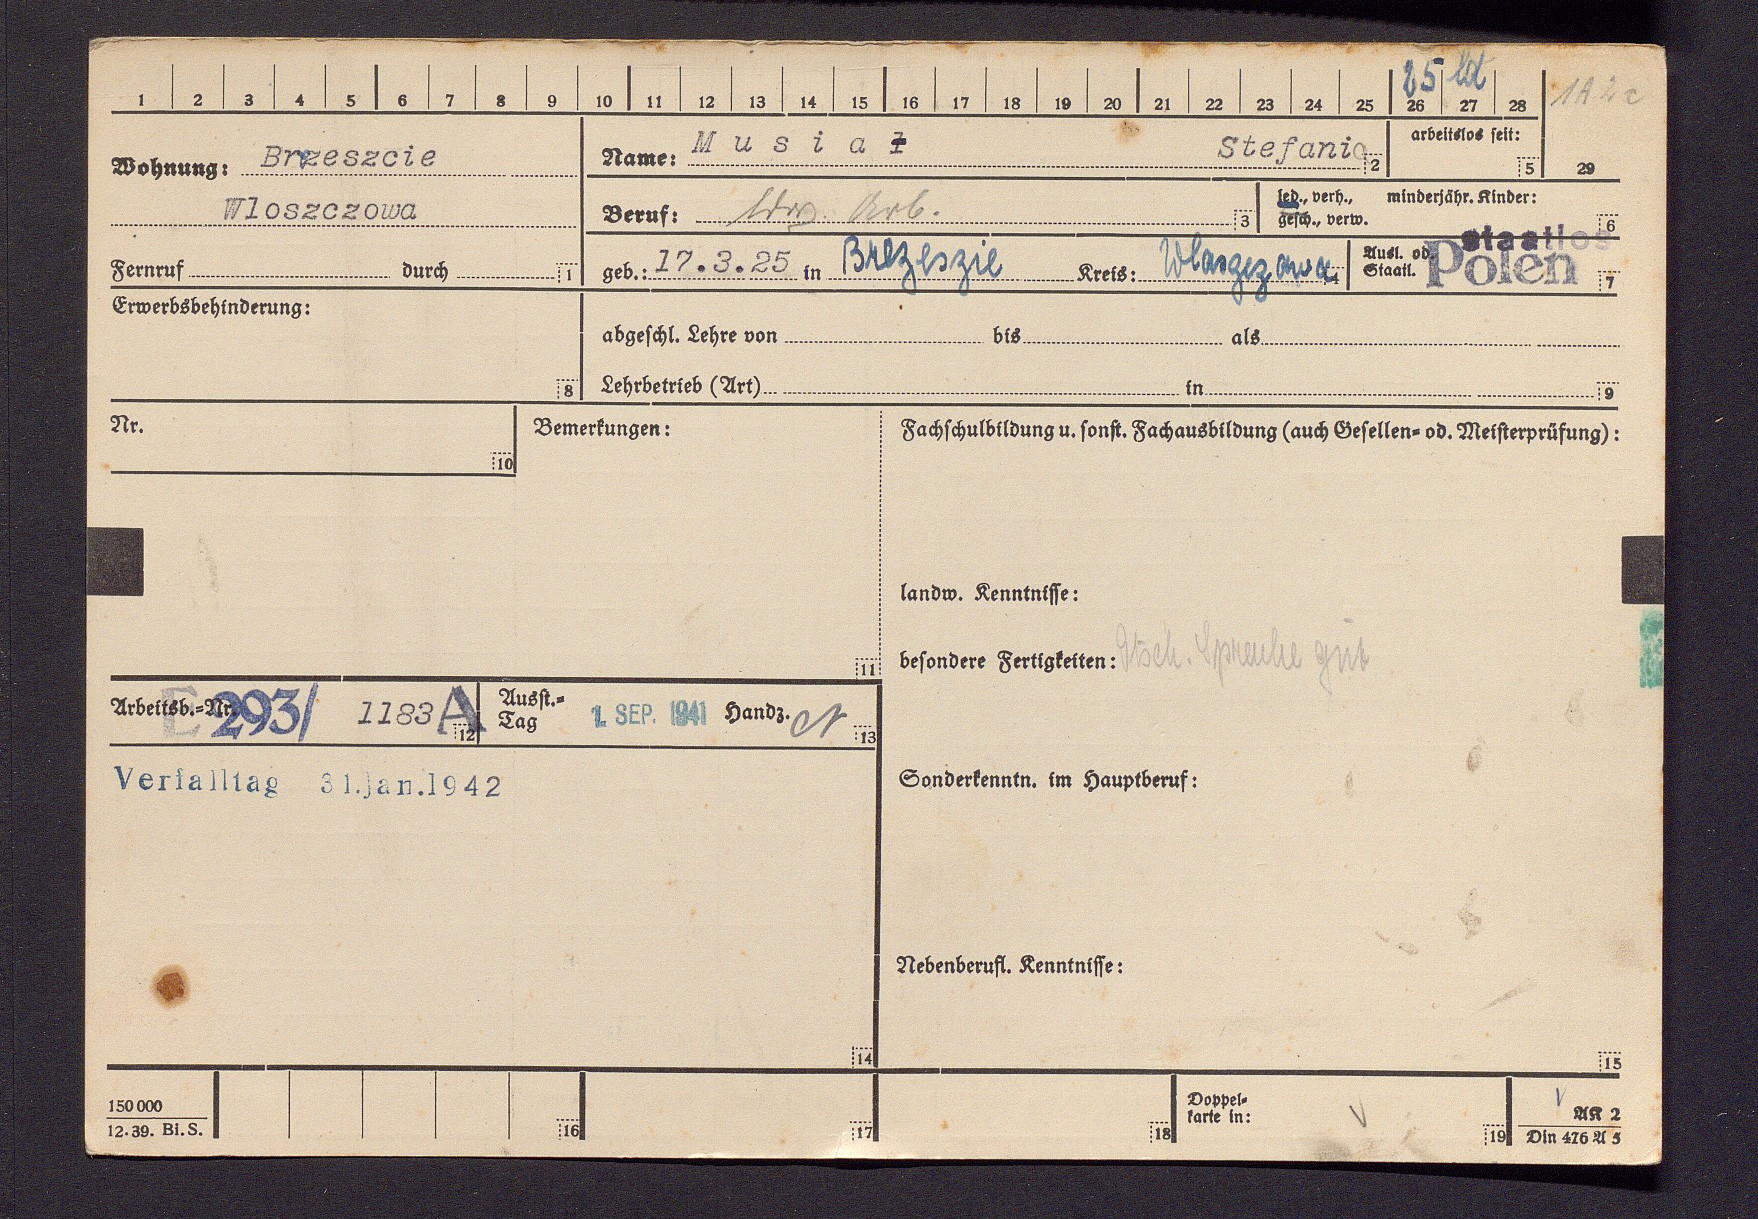 25 ld
1 2 3 4 5 6 7 8 9 10 11 12 13 14 15 16 17 18 19 20 21 22 23 24 25 26 27 28 1A2c
Wohnung: Brzeszcie
Wloszczowa
Fernruf durch 1
Name: Musiał Stefania 2
arbeitslos seit: 5 29
Beruf: ldw. Arb. 3
led., verh., minderjähr. Kinder:
gesch., verw. 6
geb.: 17.3.25 in Brezeszie Kreis: 4
Ausl. od. Staatl. staatlos Polen 7
Erwerbsbehinderung: 8
abgeschl. Lehre von bis als
Lehrbetrieb (Art) in 9
Nr. 10
Bemerkungen: 11
Fachschulbildung u. sonst. Fachausbildung (auch Gesellen- od. Meisterprüfung):
landw. Kenntnisse:
besondere Fertigkeiten: Dtsch. Sprache gut
Arbeitsb.-Nr. E 293/ 1183 A 12
Ausst.-Tag 1. SEP. 1941 Handz. 13
Verfalltag 31.Jan.1942
Sonderkenntn. im Hauptberuf:
Nebenberufl. Kenntnisse:
14 15
150 000
12.39. Bi.S.
16 17 18
Doppel-
karte in: 19
AK 2
Din 476 A 5